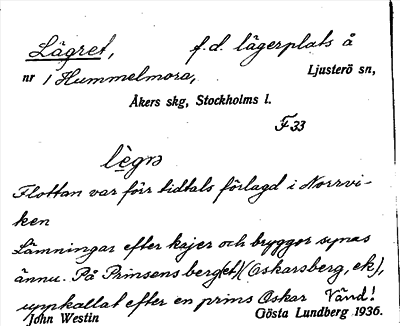 Lägret, f.d. lägerplats å
nr 1 Hummelmora, Ljusterö sn,
Åkers skg, Stockholms l.
F 33
lègrə
Flottan var förr tidtals förlagd i Norrvi-
ken
Lämningar efter kajer och bryggor synas
ännu. På Prinsensberg(et) (Oskarsberg, ek),
uppkallat efter en prins Oskar Vänd!
John Westin Gösta Lundberg 1936.